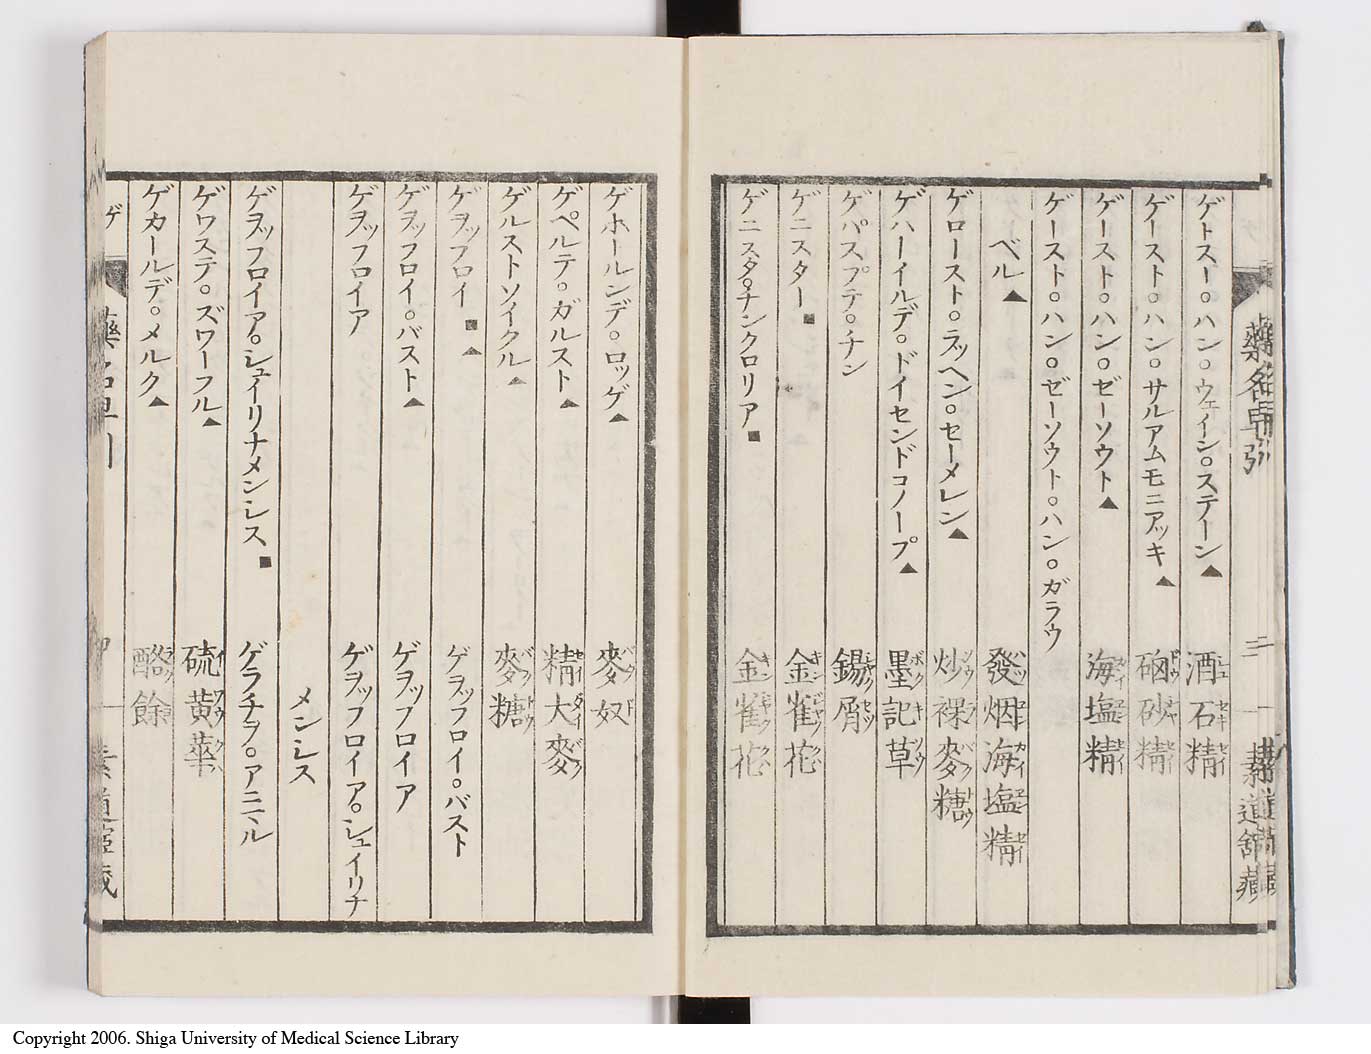 ゲトスー○ハン○ウェイン○ステーン▲ 酒石精
ゲースト○ハン○サルアムモニアッキ▲ 硇砂精
ゲースト○ハン○ゼーソウト▲ 海塩精
ゲースト○ハン○ゼーソウト○ハン○ガラウ
ベル▲ 發烟海塩精
ゲロースト○ラッヘン○セーメレン▲ 炒裸麥糖
ゲハーイルデ○ドイセンドコノープ▲ 墨記草
ゲパスプテ○チン 錫屑
ゲニスター■ 金雀花
ゲニスタ○チンクロリア■ 金雀花
ゲホールンデ○ロッゲ▲ 麥奴
ゲペルテ○ガルスト▲ 精大麥
ゲルストソイクル▲ 麥糖
ゲヲッフロイ■▲ ゲヲッフロイ○バスト
ゲヲッフロイ○バスト▲ ゲヲッフロイア
ゲヲッフロイア ゲヲッフロイア○シュイリナ
メンシス
ゲヲッフロイア○シュイリナメンシス■ ゲラチフ○アニール
ゲワステ○ズワーフル▲ 硫黄華
ゲカールデ○メルク▲ 酪餘
ゲ
藥名
Copyright 2006. Shiga University of Medical Science Library